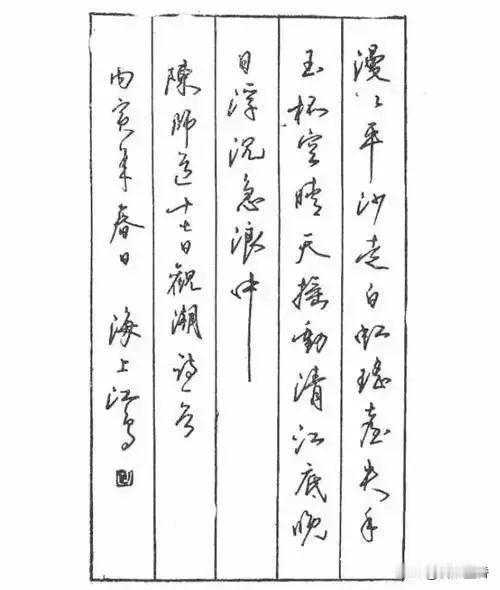 漫々平沙走白虹瑶臺失手
玉杯空晴天摇動清江底晚
日浮沉急浪中
陳師道十七日觀潮诗一首
丙寅年春日 海上江鸟